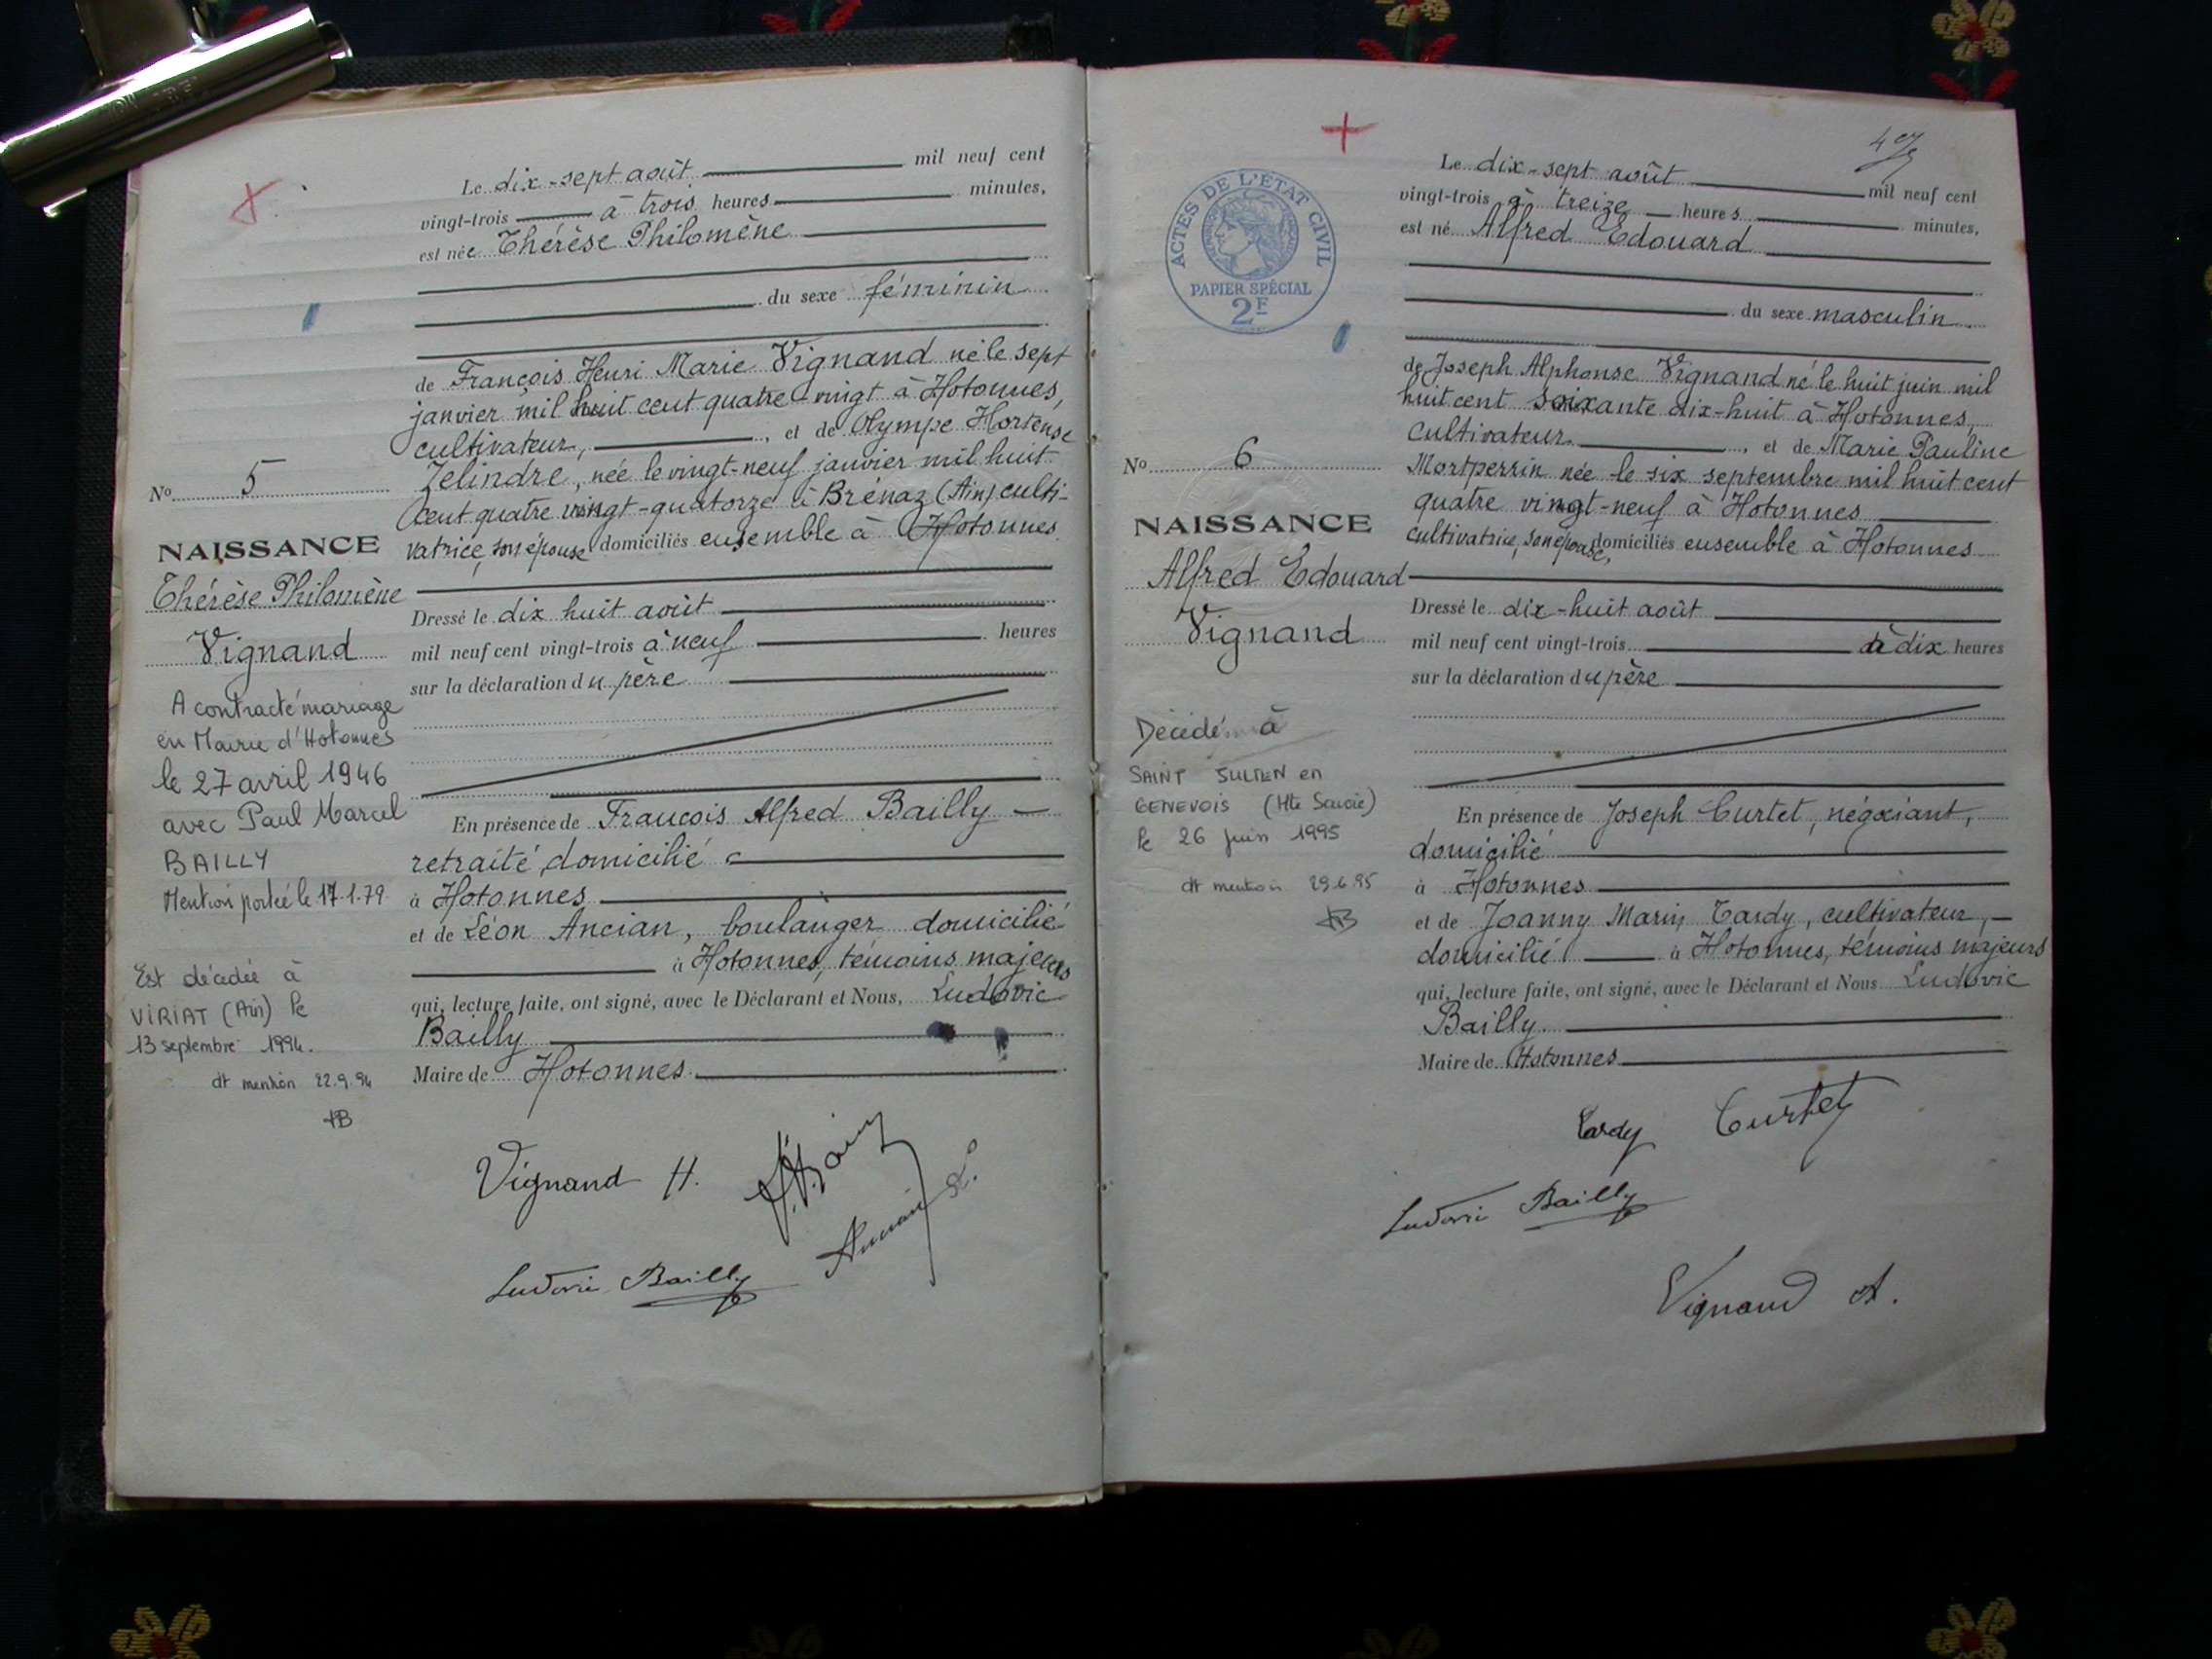 Le dix-sept août mil neuf cent
vingt-trois à trois heures minutes,
est née Thérèse Philomène
du sexe féminin
de François Henri Marie Vignand né le sept
janvier mil huit cent quatre-vingt à Hotonnes,
cultivateur, et de Olympe Hortense
Zelindre, née le vingt-neuf janvier mil huit
cent quatre vingt-quatorze à Brénaz (Ain) culti-
vatrice, son épouse domiciliés ensemble à Hotonnes.
Dressé le dix huit août
mil neuf cent vingt-trois à neuf heures
sur la déclaration du père
En présence de Francois Alfred Bailly
retraité, domicilié
à Hotonnes
et de Léon Ancian, boulanger domicilié
à Hotonnes, témoins majeurs
qui, lecture faite, ont signé, avec le Déclarant et Nous, Ludovic
Bailly
Maire de Hotonnes
Vignand H.
Ludovic Bailly
No 5
NAISSANCE
Thérèse Philomène
Vignand
A contracté mariage
en Mairie d'Hotonnes
le 27 avril 1946
avec Paul Marcel
BAILLY
Mention portée le 17.1.79
Est décédée à
VIRIAT (Ain) le
13 septembre 1994.
dt mention 22.9.94
ACTES DE L'ÉTAT CIVIL
PAPIER SPÉCIAL
2F
Le dix-sept août mil neuf cent
vingt-trois à treize heures minutes,
est né Alfred Edouard
du sexe masculin
de Joseph Alphonse Vignand né le huit juin mil
huit cent soixante dix-huit à Hotonnes,
cultivateur, et de Marie Pauline
Montperrin née le six septembre mil huit cent
quatre vingt-neuf à Hotonnes
cultivatrice, son épouse, domiciliés ensemble à Hotonnes
Dressé le dix-huit août
mil neuf cent vingt-trois à dix heures
sur la déclaration du père
En présence de Joseph Curtet, négociant,
domicilié
à Hotonnes
et de Joanny Marin Tardy, cultivateur,
domicilié à Hotonnes, témoins majeurs
qui, lecture faite, ont signé, avec le Déclarant et Nous Ludovic
Bailly
Maire de Hotonnes
Tardy Curtet
Ludovic Bailly
Vignand A.
No 6
NAISSANCE
Alfred Edouard
Vignand
Décédé à
SAINT JULIEN en
GENEVOIS (Hte Savoie)
le 26 juin 1995
dt mention 29.6.95